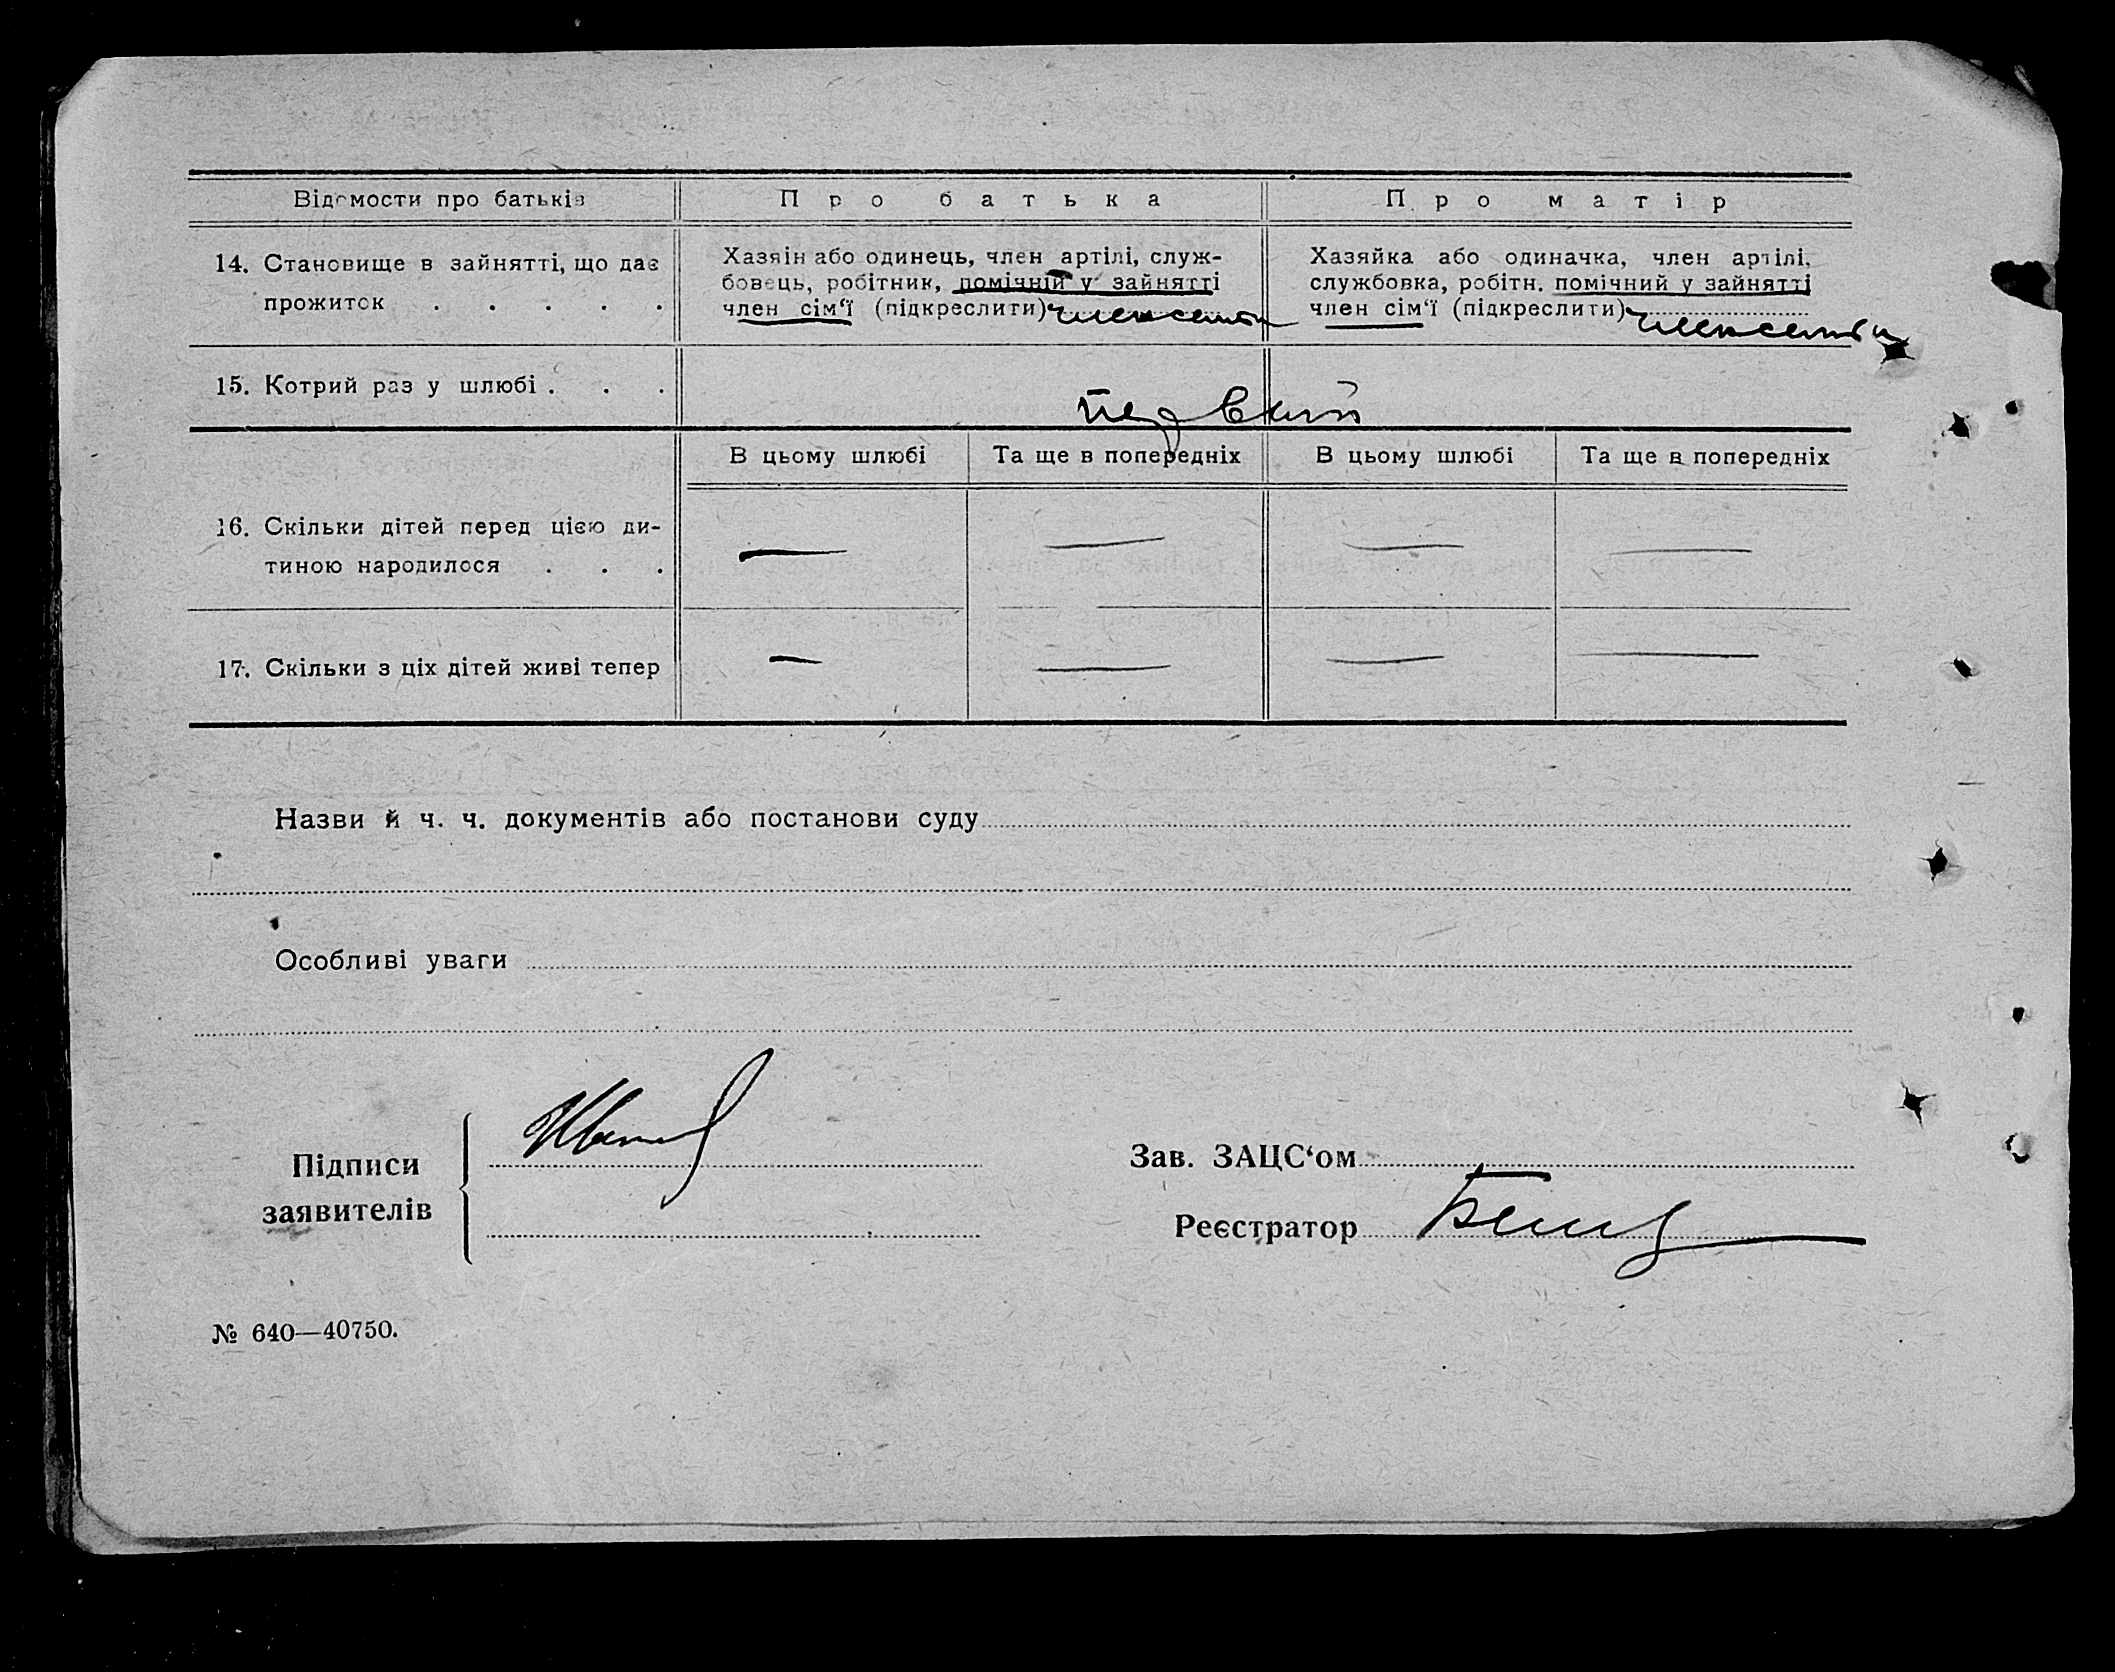 Відомости про батьків
Про батька
Про матір
14. Становище в зайнятті, що дає
прожиток . . . . .
Хазяін або одинець, член артілі, служ-
бовець, робітник, помічній у зайнятті
член сім‘ї (підкреслити) член семьи
Хазяйка або одиначка, член артілі,
службовка, робітн. помічний у зайнятті
член сім‘ї (підкреслити) член семьи
15. Котрий раз у шлюбі . . .
В цьому шлюбі
Та ще в попередніх
В цьому шлюбі
Та ще в попередніх
16. Скільки дітей перед цією ди-
тиною народилося . . .
— — — —
17. Скільки з ціх дітей живі тепер
— — — —
Назви й ч. ч. документів або постанови суду
Особливі уваги
Підписи
заявителів
Зав. ЗАЦС‘ом
Реєстратор
№ 640—40750.